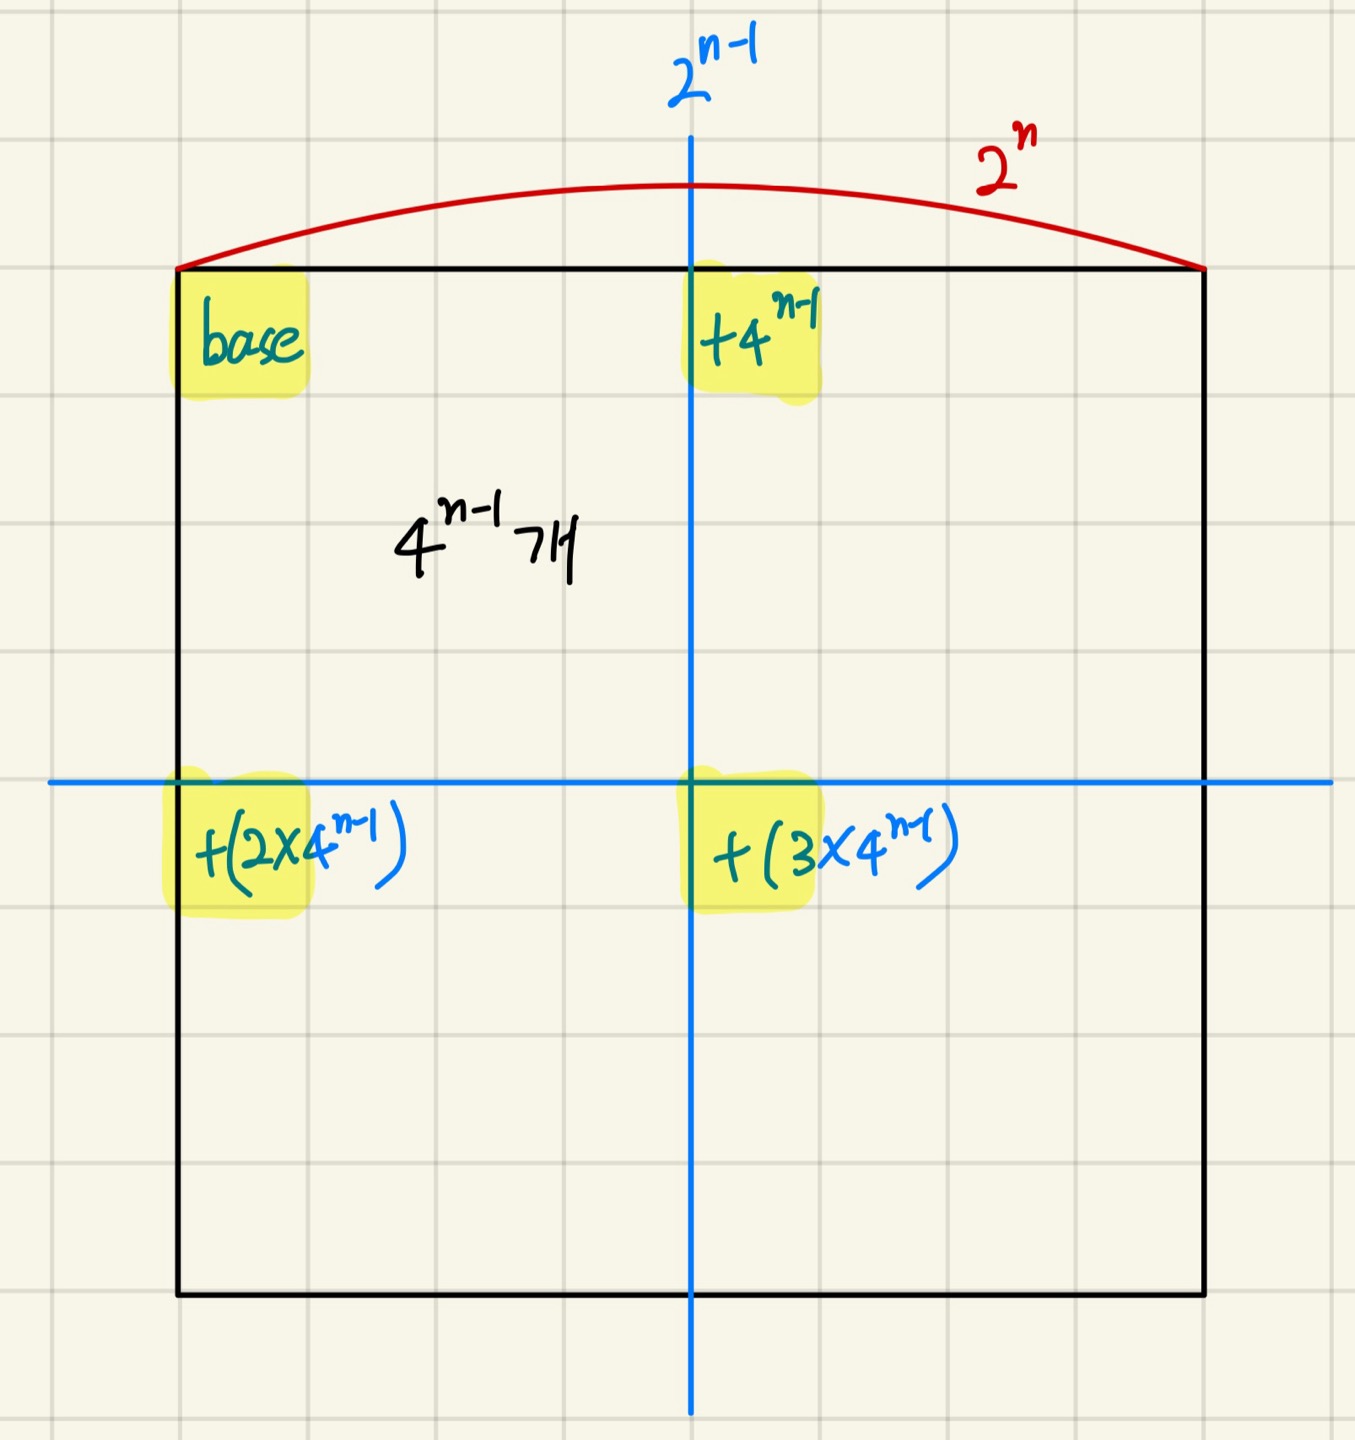 2^{n-1}
2^n
base
+4^{n-1}
4^{n-1}개
+(2×4^{n-1})
+(3×4^{n-1})